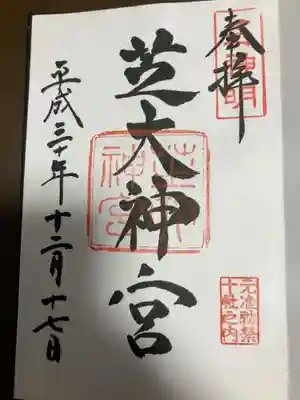 奉拝
芝大神宮
芝大神宮
元准勅祭
十社之内
平成三十年十二月十七日